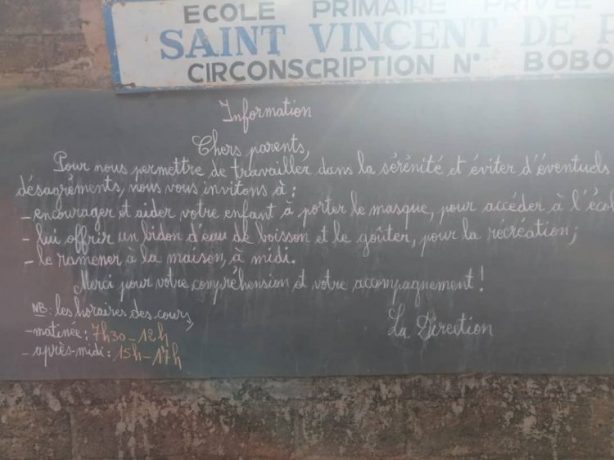 ECOLE PRIMAIRE PRIVEE
SAINT VINCENT DE
CIRCONSCRIPTION N° BOBO
Information
Chers parents,
Pour nous permettre de travailler dans la sérénité et éviter d'éventuels
désagréments, nous vous invitons à :
- encourager et aider votre enfant à porter le masque, pour accéder à l'écol
- lui offrir un bidon d'eau de boisson et le goûter, pour la récréation;
- le ramener à la maison, à midi.
Merci pour votre compréhension et votre accompagnement !
NB: les horaires des cours,
- matinée : 7h30 - 12h
- après-midi : 15h - 17h
La Direction